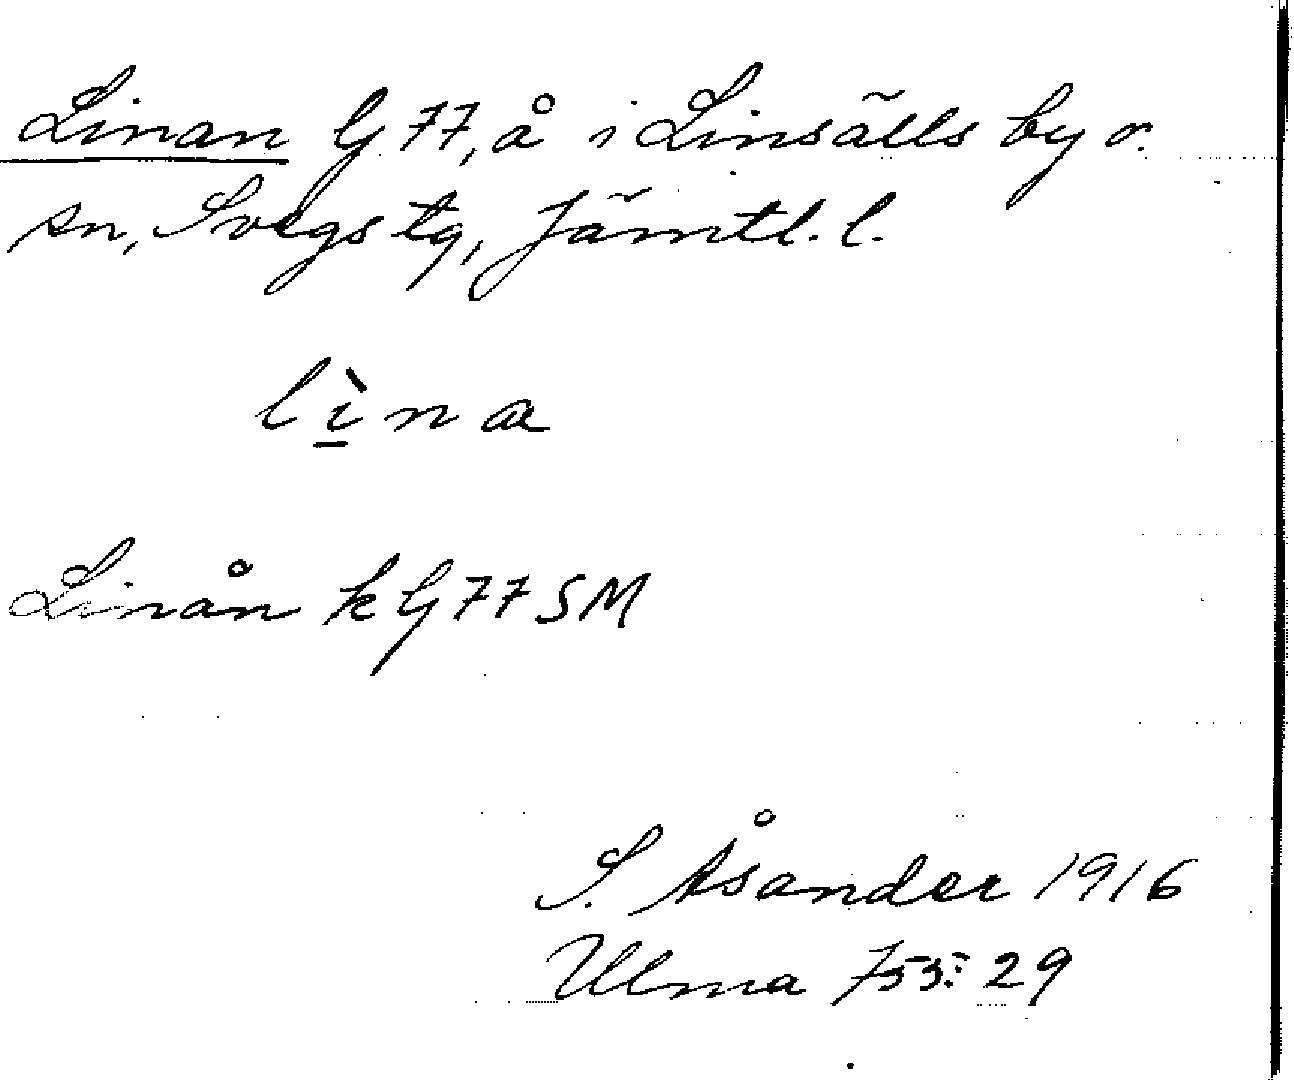 Linan G 77, å i Linsälls by o.
sn, Svegs tg, Jämtl. l.
lìna
Linån k G 77 SM
S. Åsander 1916
Ulma 755: 29